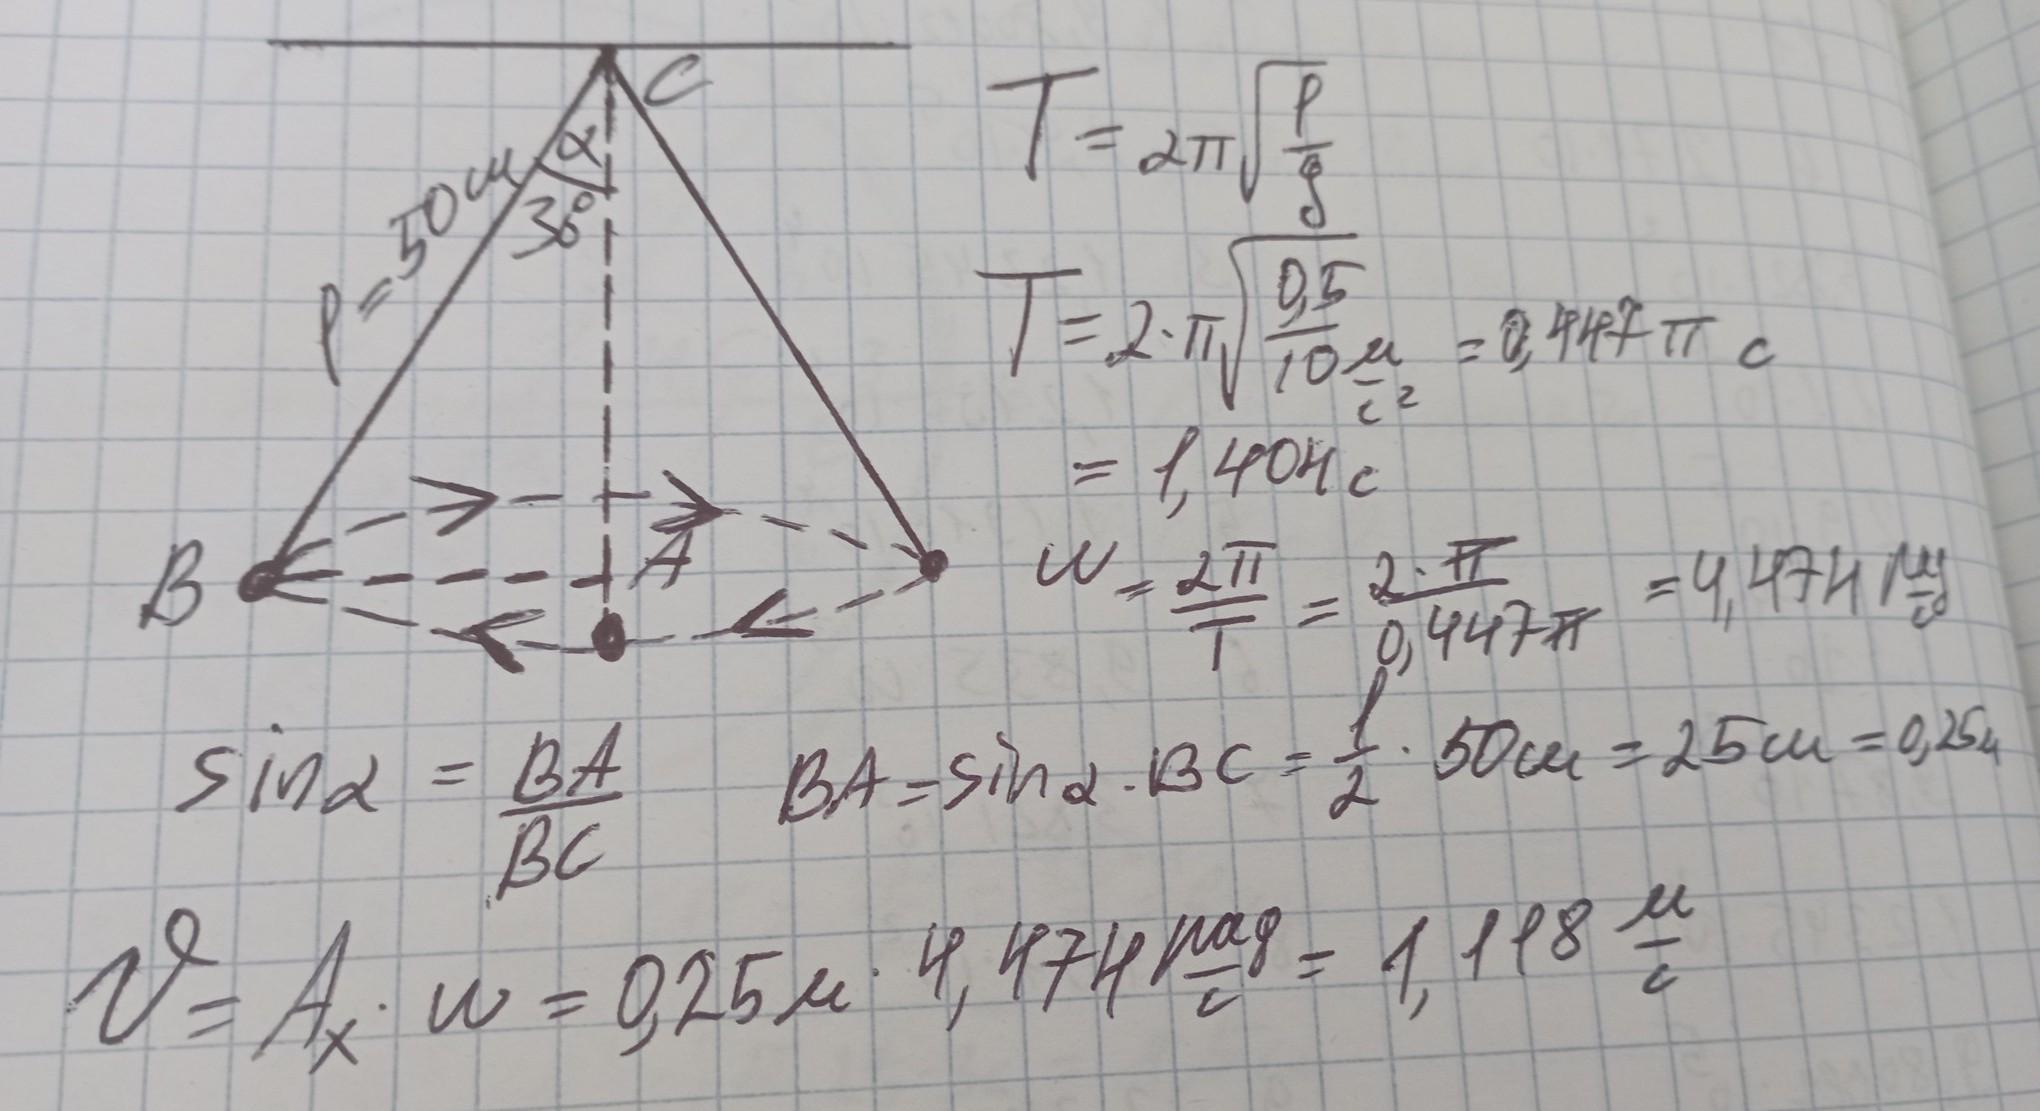 C
α
30°
l = 50 см
B
A
T = 2π√(l/g)
T = 2·π√(0,5/10 м/с²) = 0,447π с
= 1,404 с
w = 2π/T = 2·π/0,447π = 4,474 рад/с
sinα = BA/BC
BA = sinα · BC = 1/2 · 50см = 25см = 0,25м
V = Aₓ · w = 0,25м · 4,474 рад/с = 1,118 м/с